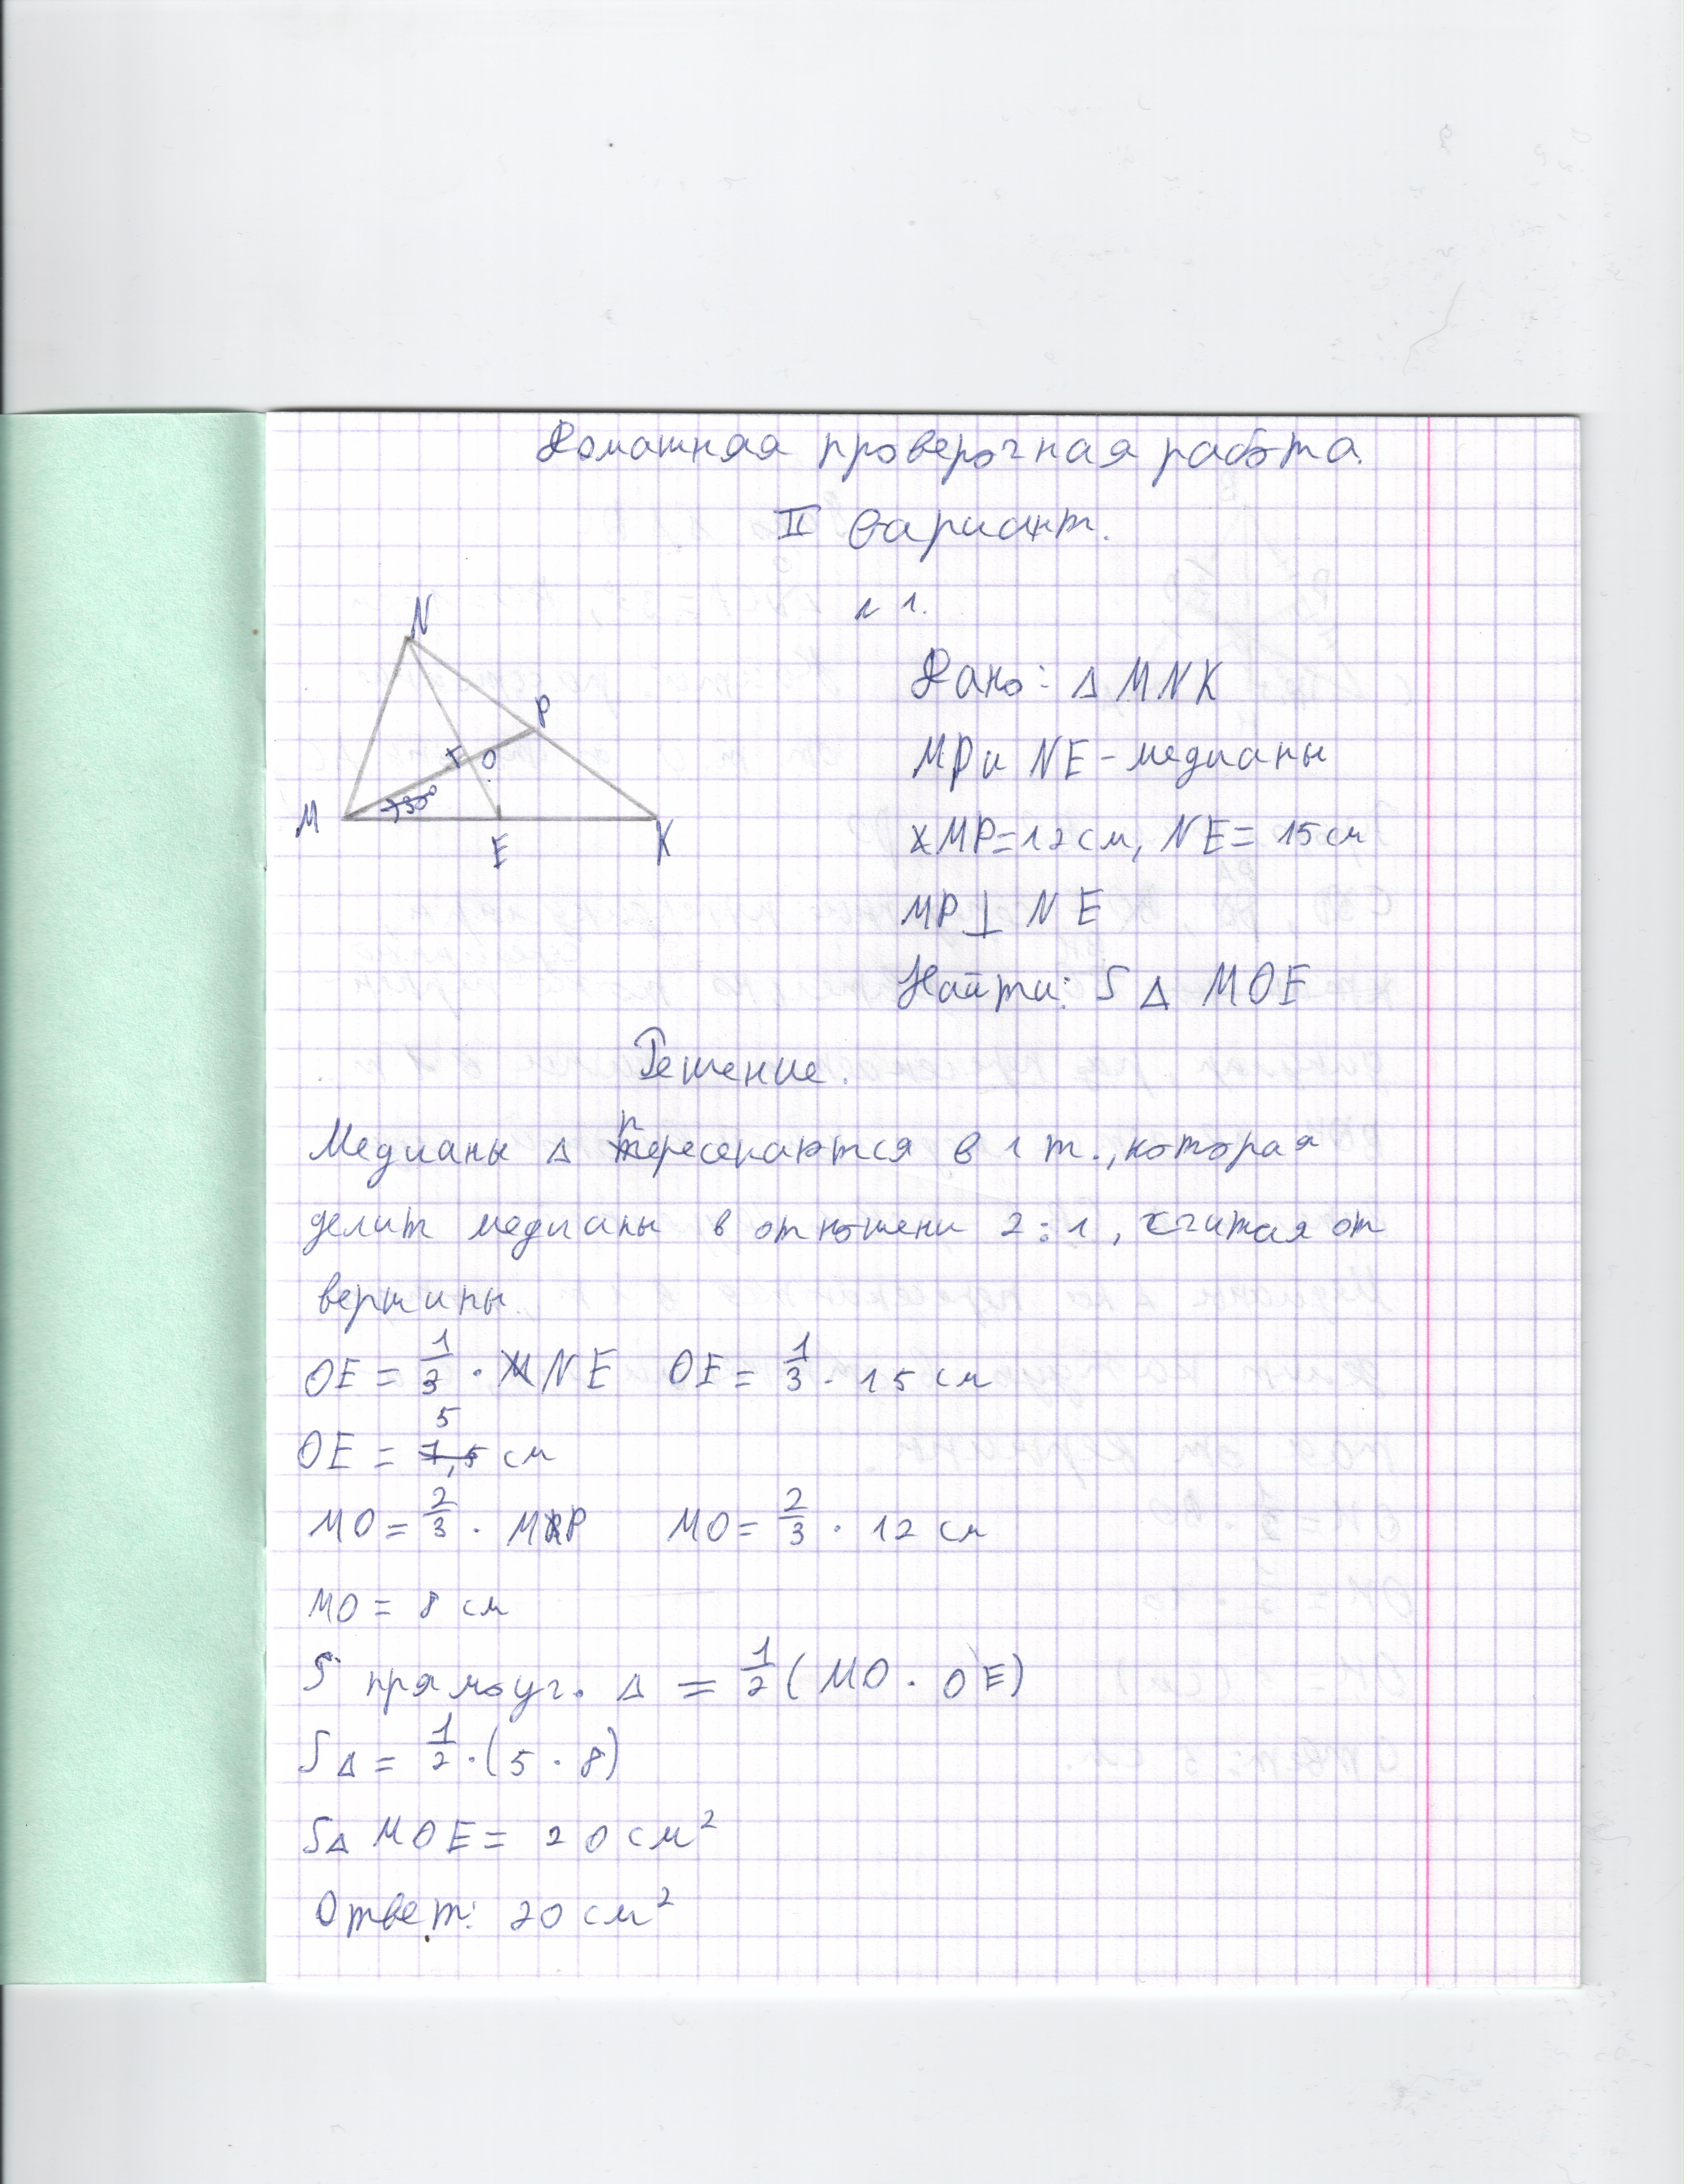 Домашняя проверочная работа.
II вариант.
N 1.
N
P
O
M
E
K
Дано: Δ MNK
MP и NE - медианы
MP=12 см, NE = 15 см
MP ⊥ NE
Найти: S Δ MOE
Решение.
Медианы Δ пересекаются в 1 т., которая
делит медианы в отношени 2:1, считая от
вершины.
OE = 1/3 · NE OE = 1/3 · 15 см
OE = 5 см
MO = 2/3 · MP MO = 2/3 · 12 см
MO = 8 см
S прямоуг. Δ = 1/2 (MO · OE)
SΔ = 1/2 · (5 · 8)
SΔ MOE = 20 см²
Ответ: 20 см²